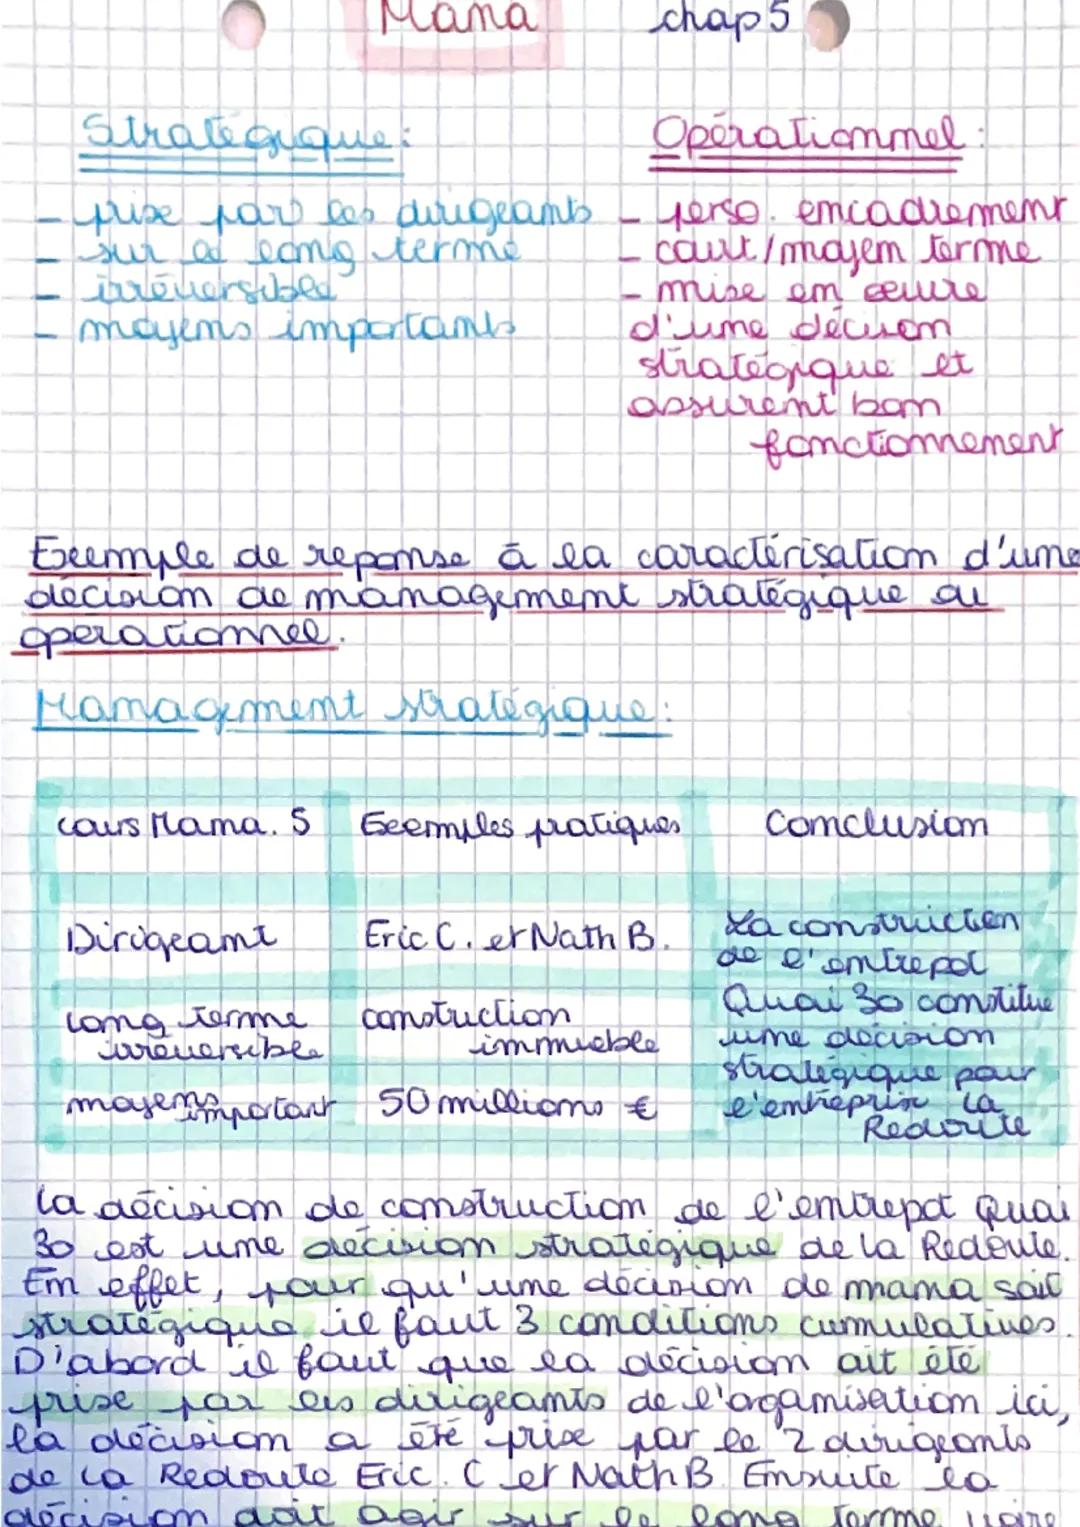 Mana chap 5
Stratégique :
- prise par les dirigeants
- sur le long terme
- irréversible
- moyens importants
Opérationnel :
- perso. encadrement
- court/moyen terme
- mise en œuvre
d'une décision
stratégique et
assurent bon
fonctionnement
Exemple de reponse à la caractérisation d'une
décision de management stratégique ou
operationnel.
Management stratégique :
cours Mana. 5 Exemples pratiques Conclusion
Dirigeant Eric C. et Nath B.
long terme construction
irréversible immueble
moyens important 50 millions €
La construction
de l'entrepot
Quai 30 constitue
une décision
stratégique pour
l'entreprise La
Redoute
La décision de construction de l'entrepot Quai
30 est une décision stratégique de la Redoute.
En effet, pour qu'une décision de mana soit
stratégique il faut 3 conditions cumulatives.
D'abord il faut que la décision ait été
prise par les dirigeants de l'organisation ici,
la décision a été prise par le 2 dirigeants
de la Redoute Eric. C et Nath B. Ensuite la
décision doit agir sur le long terme voire